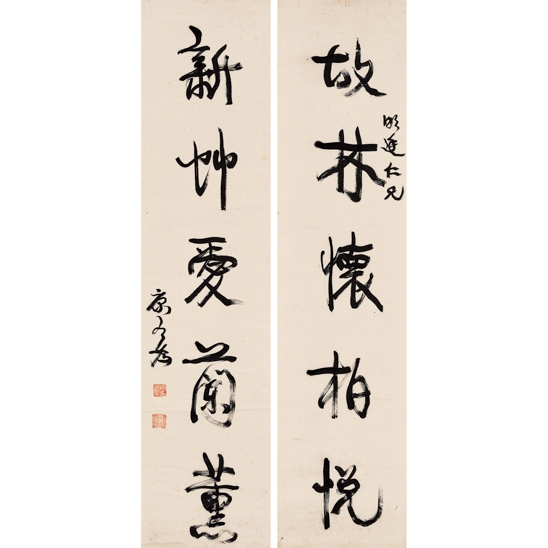 故林懷柏悅
明廷仁兄
新艸愛蘭薰
康有為